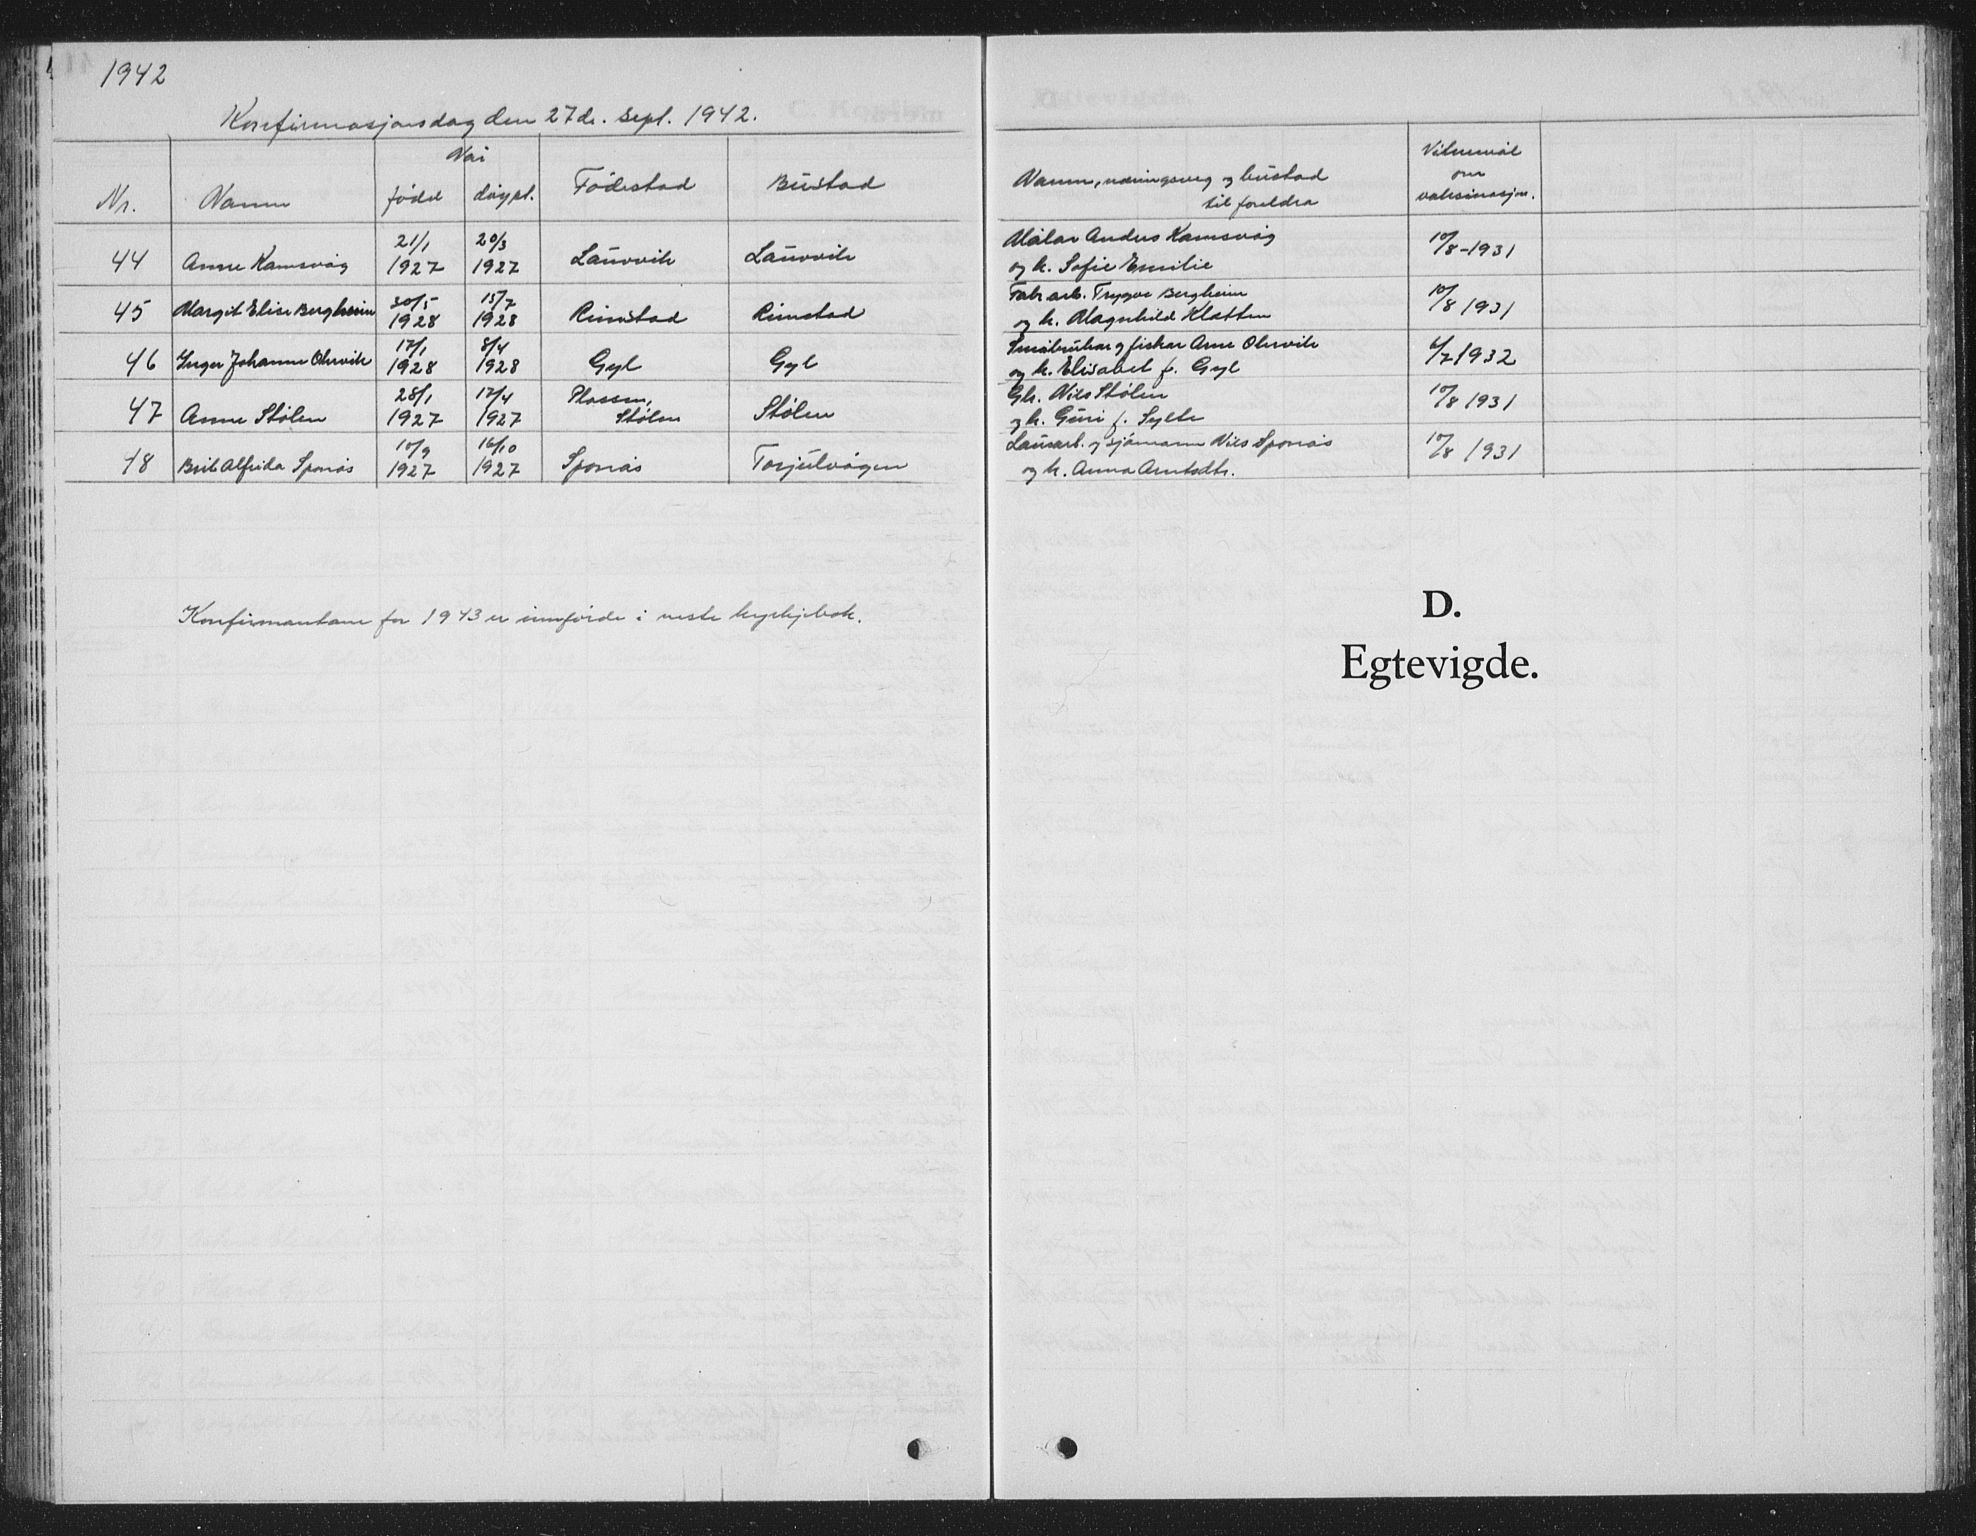 1942
Konfirmasjonsdag den 27de. Sept. 1942.
Nr. Namn Var fødd døypt. Fødestad Bustad
44 Anne Kamsvåg 21/1 1927 20/3 1927 Laurvik Laurvik
45 Margit Elise Bergheim 30/5 1928 15/7 1928 Rimstad Rimstad
46 Inger Johanne Ohrvik 17/1 1928 8/4 1928 Gyl Gyl
47 Anne Stølen 28/1 1927 17/4 1927 Plassen, Stølen Stølen
48 Brit Alfrida Sponås 10/9 1927 16/10 1927 Sponås Torjulvågen
Konfirmantane for 1943 er innførde i neste kyrkjebok.
Namn, næringsveg og bustad
til foreldra
Vitnemål
om
vaksinasjon.
Målar Anders Kamsvåg
og k. Sofie Emilie
10/8-1931
Fabr.arb. Trygve Bergheim
og k. Magnhild Kletten
10/8 1931
Småbrukar og fiskar Arne Ohrvik
og k. Elisabet f. Gyl
6/7 1932
Gbr. Nils Stølen
og k. Guri f. Sylte
10/8 1931
Lausarb. og sjømann Nils Sponås
og k. Anna Arntsdtr.
10/8 1931
D.
Egtevigde.